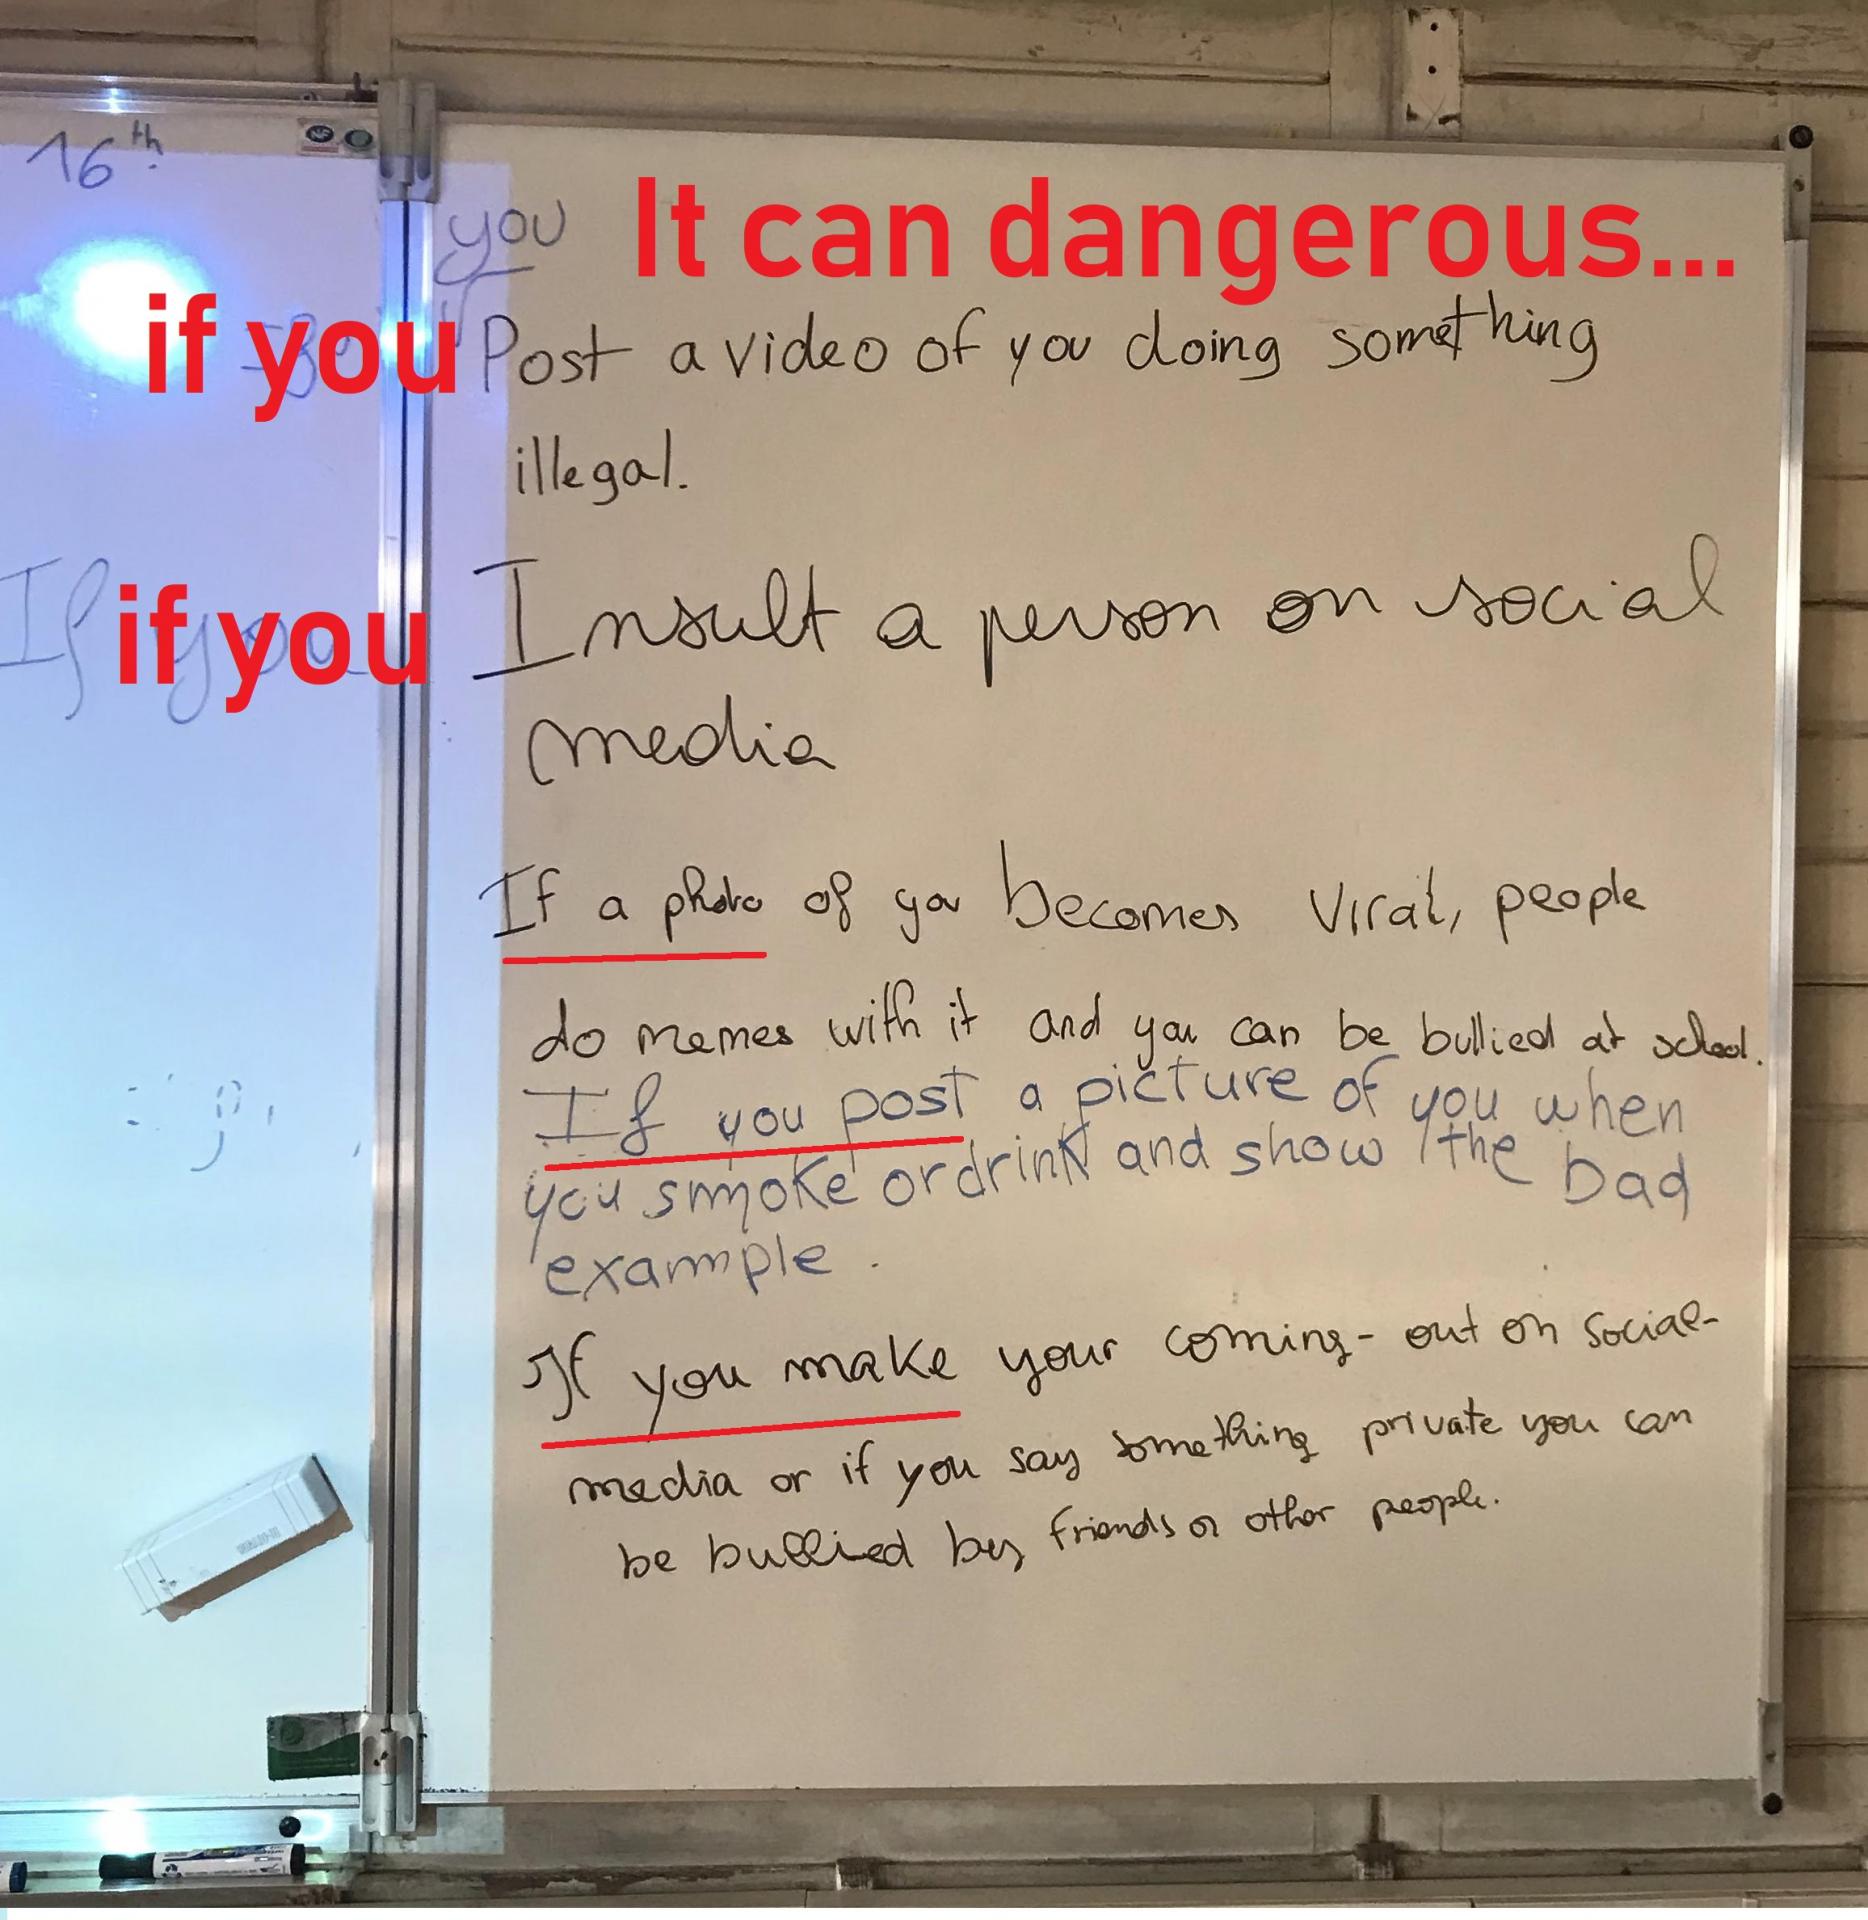 16th
you
It can dangerous...
if you Post a video of you doing something
illegal.
If you
if you Insult a person on social
media
If a photo of you becomes viral, people
do memes with it and you can be bullied at school.
If you post a picture of you when
you smoke or drink and show the bad
example.
If you make your coming-out on social-
media or if you say something private you can
be bullied by friends or other people.